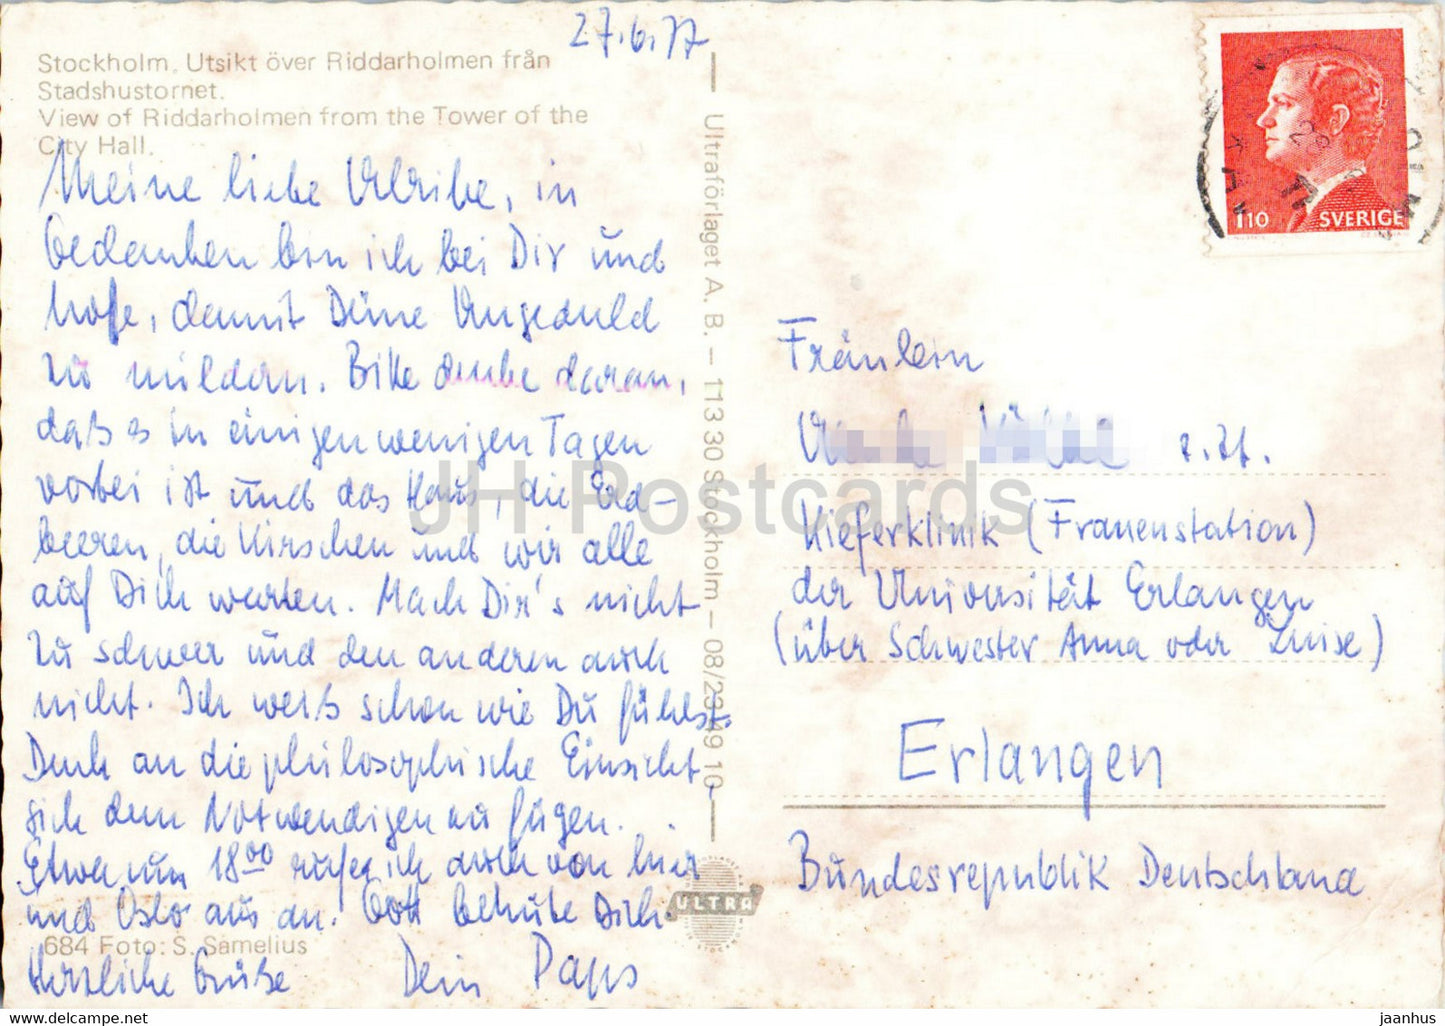 27.6.77
Stockholm. Utsikt över Riddarholmen från
Stadshustornet.
View of Riddarholmen from the Tower of the
City Hall.
Meine liebe Ulrike, in
Gedanken bin ich bei Dir und
hoffe, damit Deine Ungeduld
zu mildern. Bitte denke daran,
daß es in einigen wenigen Tagen
vorbei ist und das Haus, die Erd-
beeren, die Kirschen und wir alle
auf Dich warten. Mach Dir's nicht
zu schwer und den anderen auch
nicht. Ich weiß schon wie Du fühlst.
Denk an die philosophische Einsicht,
sich dem Notwendigen zu fügen.
Etwa um 18⁰⁰ rufe ich auch von hier
und Oslo aus an. Gott behüte Dich.
684 Foto: S. Samelius
Herzliche Grüße Dein Paps
Ultraförlaget A. B. – 113 30 Stockholm – 08/23 49 10
ULTRA
1 10 SVERIGE
Fräulein
z.Zt.
Kieferklinik (Frauenstation)
der Universität Erlangen
(über Schwester Anna oder Luise)
Erlangen
Bundesrepublik Deutschland
JH Postcards
jaanhus
www.delcampe.net